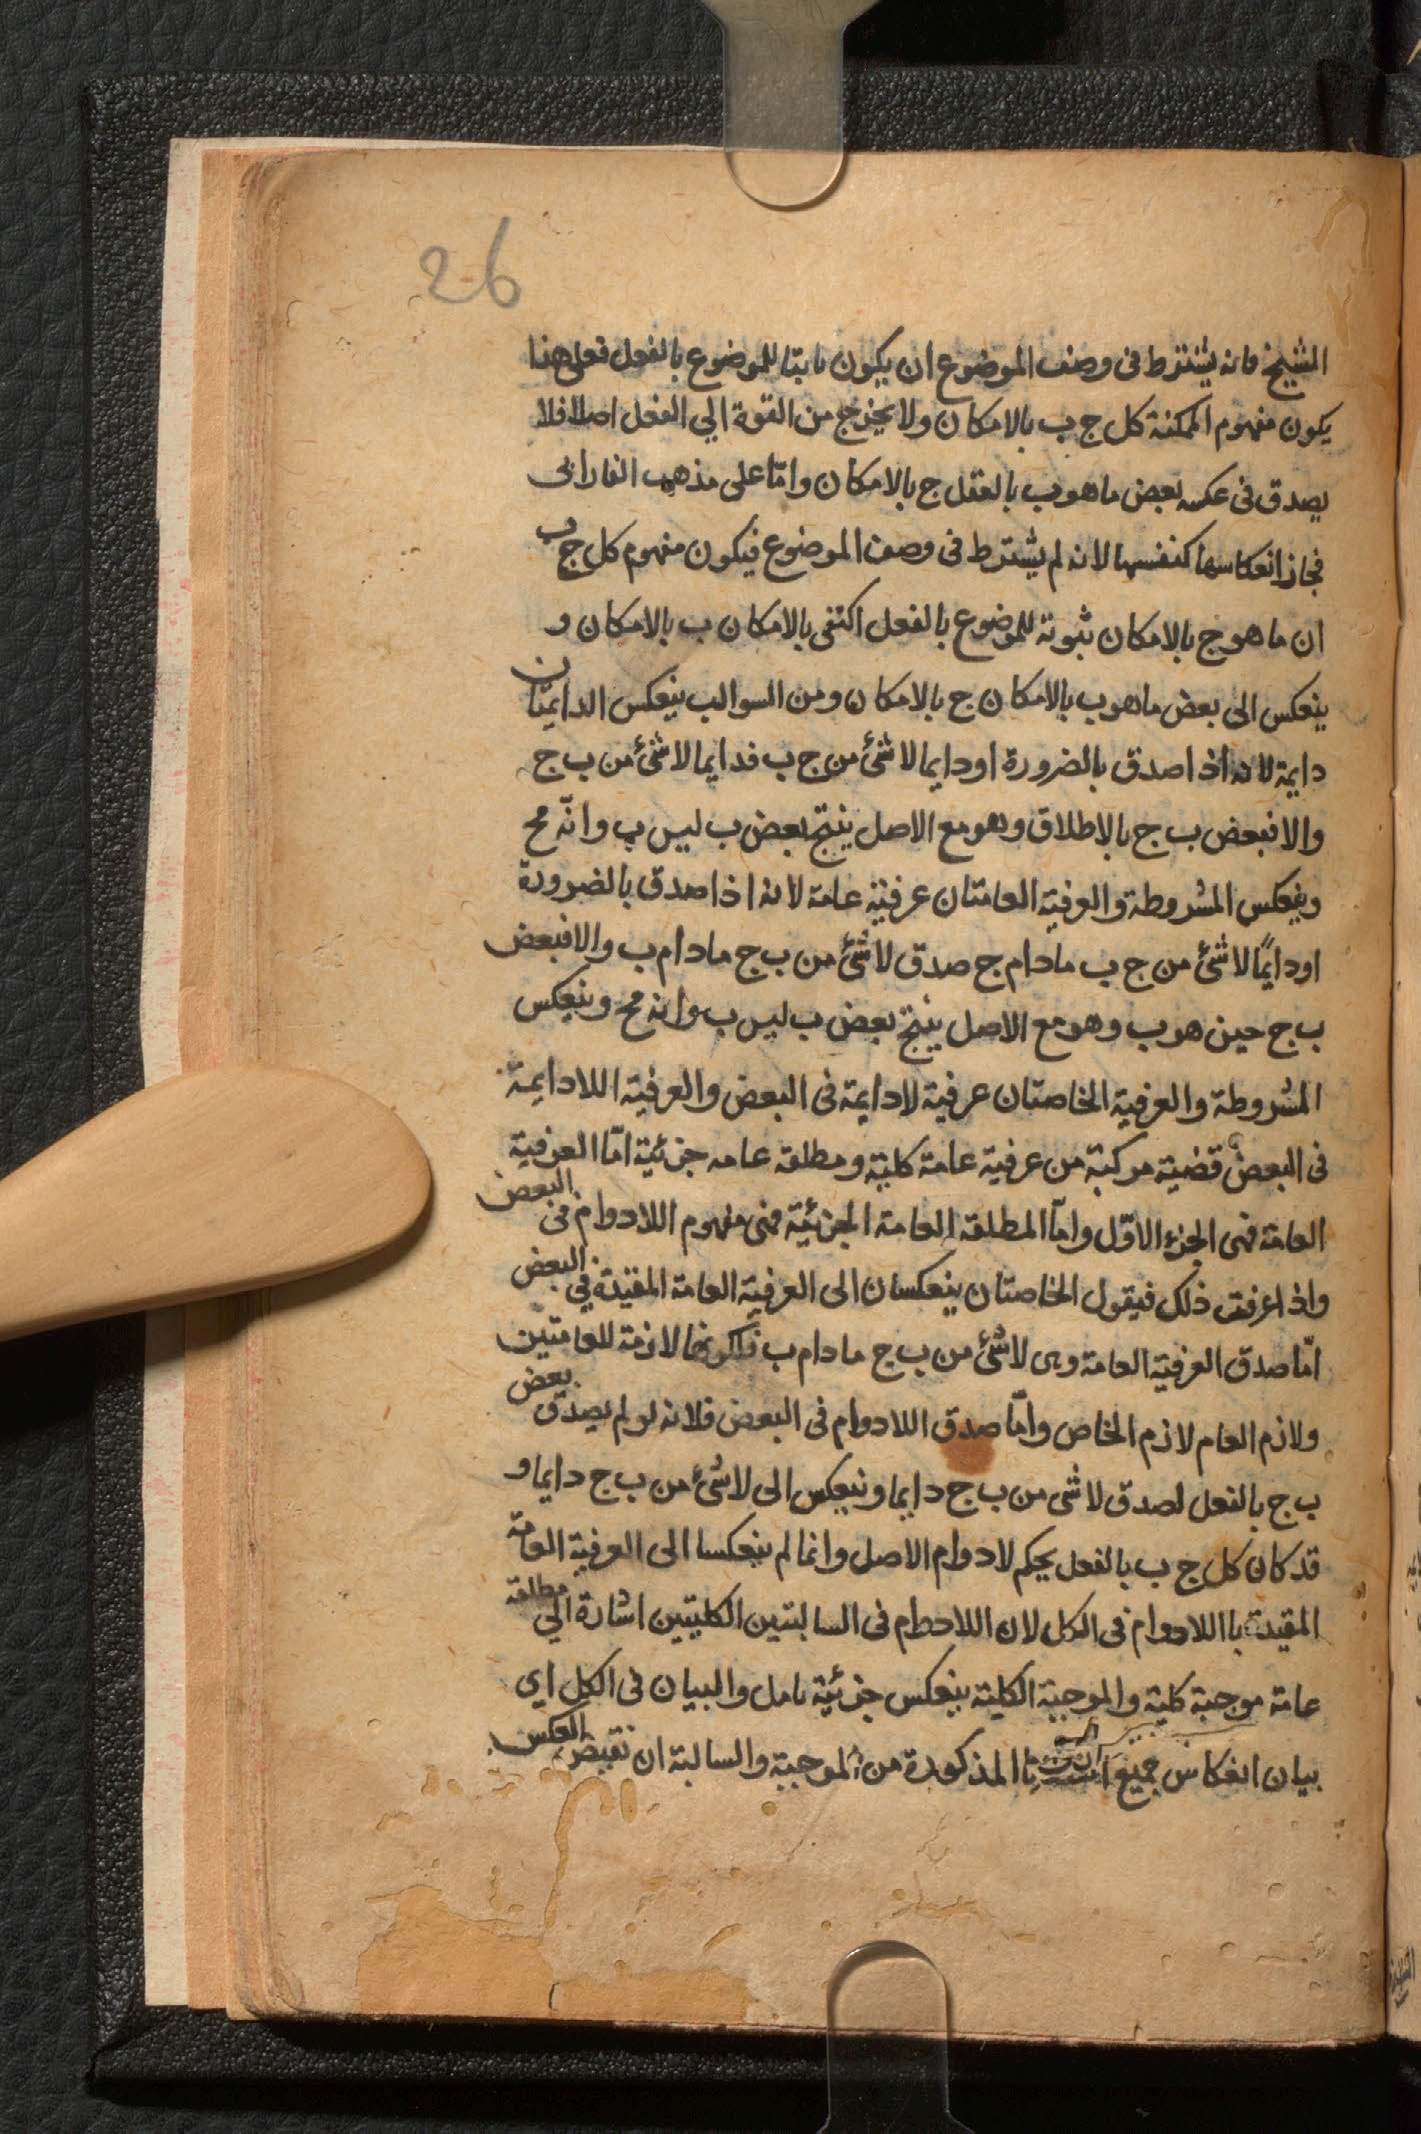 26
الشيخ فانه يشترط فى وصف الموضوع ان يكون ثابتا للموضوع بالفعل فعلى هذا
يكون مفهوم الممكنة كل ج ب بالامكان ولا يخرج من القوة الي الفعل اصلا فلا
يصدق فى عكسه بعض ما هو ب بالفعل ج بالامكان وامّا على مذهب الفارابى
فجاز انعكاسها كنفسها لانه لم يشترط فى وصف الموضوع فيكون مفهوم كل ج ب
ان ما هو ج بالامكان ثبوته للموضوع بالفعل اكتفى بالامكان ب بالامكان و
ينعكس الى بعض ما هو ب بالامكان ج بالامكان ومن السوالب ينعكس الدايمتان
دايمة لانه اذا صدق بالضرورة او دايما لا شئ من ج ب فدايما لا شئ من ب ج
والا فبعض ب ج بالاطلاق وهو مع الاصل ينتج بعض ب ليس ب وانّه مح
وينعكس المشروطة والعرفية العامتان عرفيّة عامة لانه اذا صدق بالضرورة
او دايمًا لا شئ من ج ب مادام ج صدق لا شئ من ب ج مادام ب والا فبعض
ب ج حين هو ب وهو مع الاصل ينتج بعض ب ليس ب وانه مح وينعكس
المشروطة والعرفية الخاصتان عرفية لادايمة فى البعض والعرفية اللادايمة
فى البعض قضية مركبة من عرفية عامة كلية ومطلقة عامه جزئية امّا العرفية
العامة فهى الجزء الاوّل وامّا المطلقة العامة الجزئية فهى مفهوم اللادوام فى البعض
واذا عرفت ذلك فيقول الخاصتان ينعكسان الى العرفية العامة المقيدة في البعض
امّا صدق العرفية العامة وهى لا شئ من ب ج مادام ب فلكونها لازمة للعامتين
ولازم العام لازم الخاص وامّا صدق اللادوام فى البعض فلانه لو لم يصدق بعض
ب ج بالفعل لصدق لا شى من ب ج دايما وينعكس الى لا شئ من ب ج دايما و
قد كان كل ج ب بالفعل بحكم لادوام الاصل وانما لم ينعكسا الى العرفية العامة
المقيدة باللادوام فى الكل لان اللادوام فى السالبتين الكليتين اشارة الي مطلقة
عامة موجبة كلية والموجبة الكلية ينعكس جزئية تامل والبيان فى الكل اي
بيان انعكاس جميع المذكورة من الموجبة والسالبة ان نقيض العكس